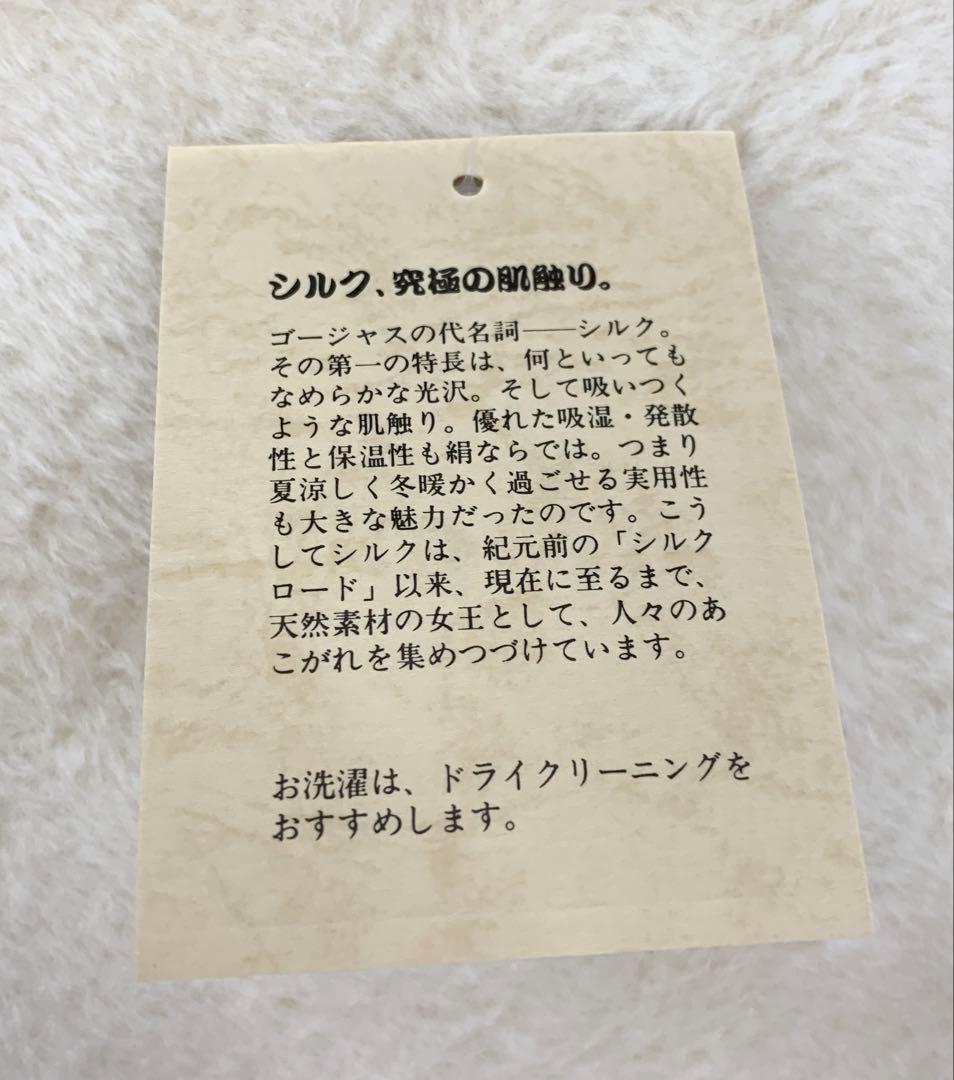 シルク、究極の肌触り。
ゴージャスの代名詞――シルク。
その第一の特長は、何といっても
なめらかな光沢。そして吸いつく
ような肌触り。優れた吸湿・発散
性と保温性も絹ならでは。つまり
夏涼しく冬暖かく過ごせる実用性
も大きな魅力だったのです。こう
してシルクは、紀元前の「シルク
ロード」以来、現在に至るまで、
天然素材の女王として、人々のあ
こがれを集めつづけています。
お洗濯は、ドライクリーニングを
おすすめします。